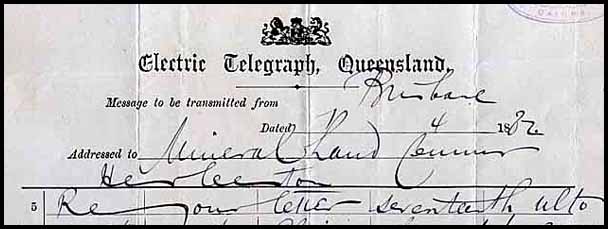 Electric Telegraph, Queensland,
Message to be transmitted from Brisbane
Dated 4 1882
Addressed to Mineral Land
Herberton
5 Re your letter seventeenth ulto